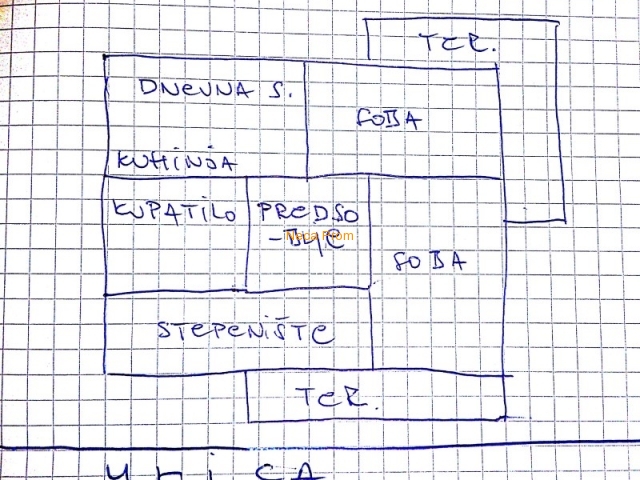 TER.
DNEVNA S.
SOBA
KUHINJA
KUPATILO
PREDSO
-BLJE
SOBA
STEPENIŠTE
TER.